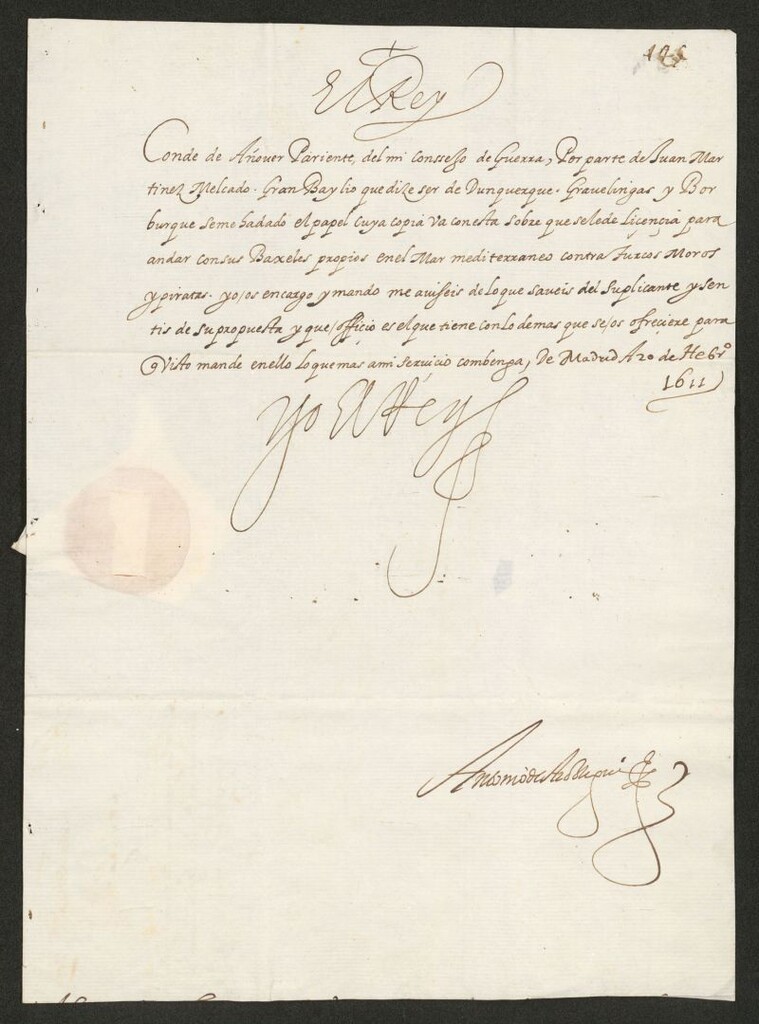 125
El Rey
Conde de Añover Pariente, del mi conssejo de Guerra, Por parte de Juan Mar
tinez Melcado. Gran Baylio que dize ser de Dunquerque. Gravelingas y Bor
burque seme ha dado el papel cuya copia va con esta sobre que sele de liçençia para
andar con sus Baxeles propios en el Mar mediterraneo contra Turcos Moros
y piratas. yo os encargo y mando me aviseis de lo que saveis del suplicante y sen
tis de su propuesta y que officio es el que tiene con lo demas que se os ofreçiere para
q Visto mande en ello lo que mas a mi serviçio combenga, De Madrid A 20 de Hebrº
1611
Yo El Rey
Antonio de